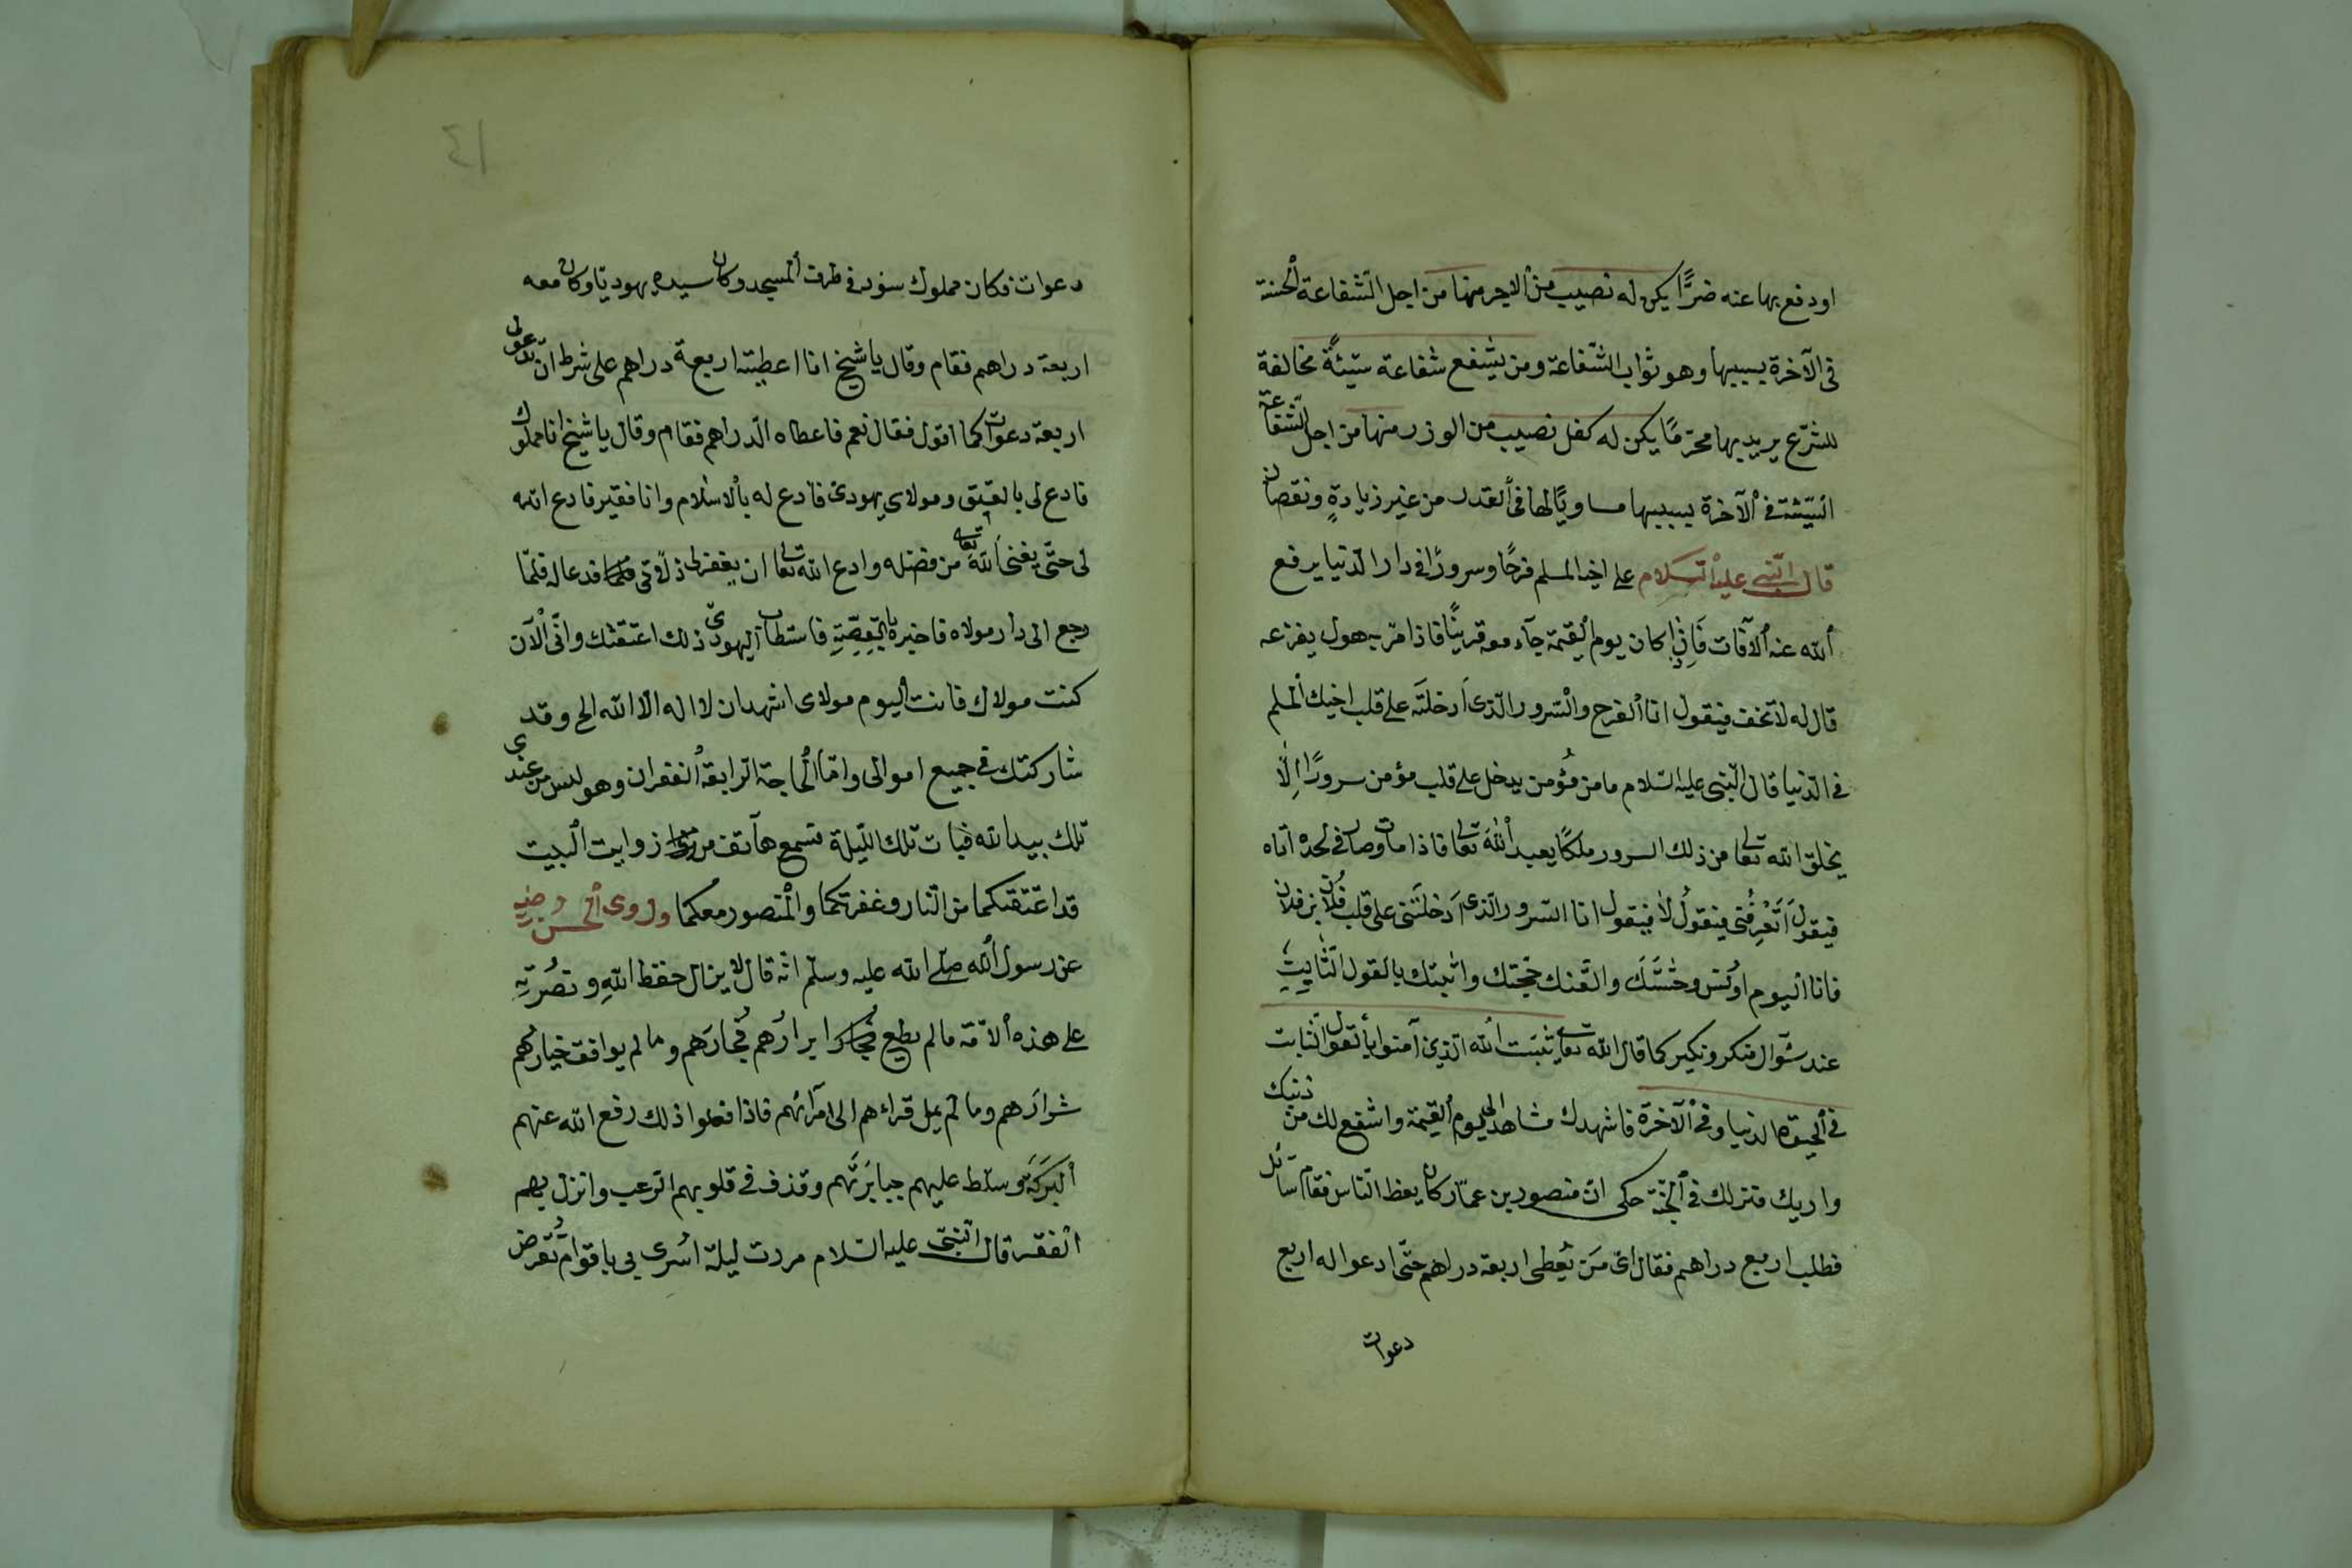 او دفع بها عنه ضرًّا يكن له نصيب من الاجر منها من اجل الشفاعة الحسنة
فى الآخرة بسببها وهو ثواب الشّفاعة ومن يشفع شفاعة سيّئةً مخالفة
للشرّع يريد بها محرّمًا يكن له كفل نصيب من الوزر منها من اجل الشفاعة
السّيّئة فى الآخرة بسببها مساويًا لها فى القدر من غير زيادةٍ ونقصان
قال النّبى عليه السلام على اخيه المسلم فرحًا وسرورًا فى دار الدّنيا يرفع
الله عنه الآفات فاذا كان يوم القيمة جآء معه قرينًا فاذا مرّ به هول يفزعه
قال له لا تخف فيقول انا الفرح والسّرور الذى ادخلته على قلب اخيك المسلم
فى الدّنيا قال النّبى عليه السّلام ما من مؤمن يدخل على قلب مؤمن سرورًا الّا
يخلق الله تعا من ذلك السرور ملكًا يعبد الله تعا فاذا مات وصار فى لحده اتاه
فيقول اتعرفنى فيقول لا فيقول انا السّرور الّذى ادخلتنى على قلب فلان بن فلان
فانا اليوم اونس وحشتك والقنك حجّتك واثبتك بالقول الثّابت
عند سّوال منكر ونكير كما قال الله تعا يثبت الله الذين آمنوا بالقول الثّابت
فى الحيوة الدنيا وفى الآخرة فاشهدك مشاهد يوم القيمة واشفع لك من ذنبك
واريك منزلك فى الجنّة حكى انّ منصور بن عمّار كان يعظ النّاس فقام سآئل
فطلب اربع دراهم فقال اىّ من يعطى اربعة دراهم حتّى ادعو له اربع
دعوات
١٤
دعوات فكان مملوك سود فى طرف المسجد وكان سيده يهوديّا وكان معه
اربعة دراهم فقام وقال يا شيخ انا اعطيته اربعة دراهم على شرط انّ تدعو لى
اربعة دعوات كما اقول فقال نعم فاعطاه الدّراهم فقام وقال يا شيخ انا مملوك
فادع لى بالعتق ومولاى يهودى فادع له بالاسلام وانا فقير فادع الله
لى حتّى يغنى الله تعا من فضله وادع الله تعا ان يغفر لى ذلاتى فدعا له فلمّا
رجع الى دار مولاه فاخبره بالقصّة فاستطاب اليهودىّ ذلك اعتقتك وانّى الآن
كنت مولاك فانت اليوم مولاى اشهد ان لا اله الا الله الخ وقد
شاركتك فى جميع اموالى وامّا الحاجة الرابعة الغفران وهو ليس من عندى
تلك بيد الله فبات تلك الليلة تسمع هآتف من زوايت البيت
قد اعتقتكما من النّار وغفرتكما والمنصور معكما وروى الحسن رضيه
عن رسول الله صلى الله عليه وسلّم انّه قال لا يزال حفظ الله ونصرته
على هذه الامّة ما لم يطع ابرارهم فجّارهم وما لم يوافق خيارهم
شرارهم وما لم يمل قراءهم الى امرآئهم فاذا فعلوا ذلك رفع الله عنهم
البركة وسلّط عليهم جبابرتهم وقذف فى قلوبهم الرّعب وانزل بهم
الفقر قال النّبىّ عليه السّلام مررت ليلة اسرى بى باقوام تقرض